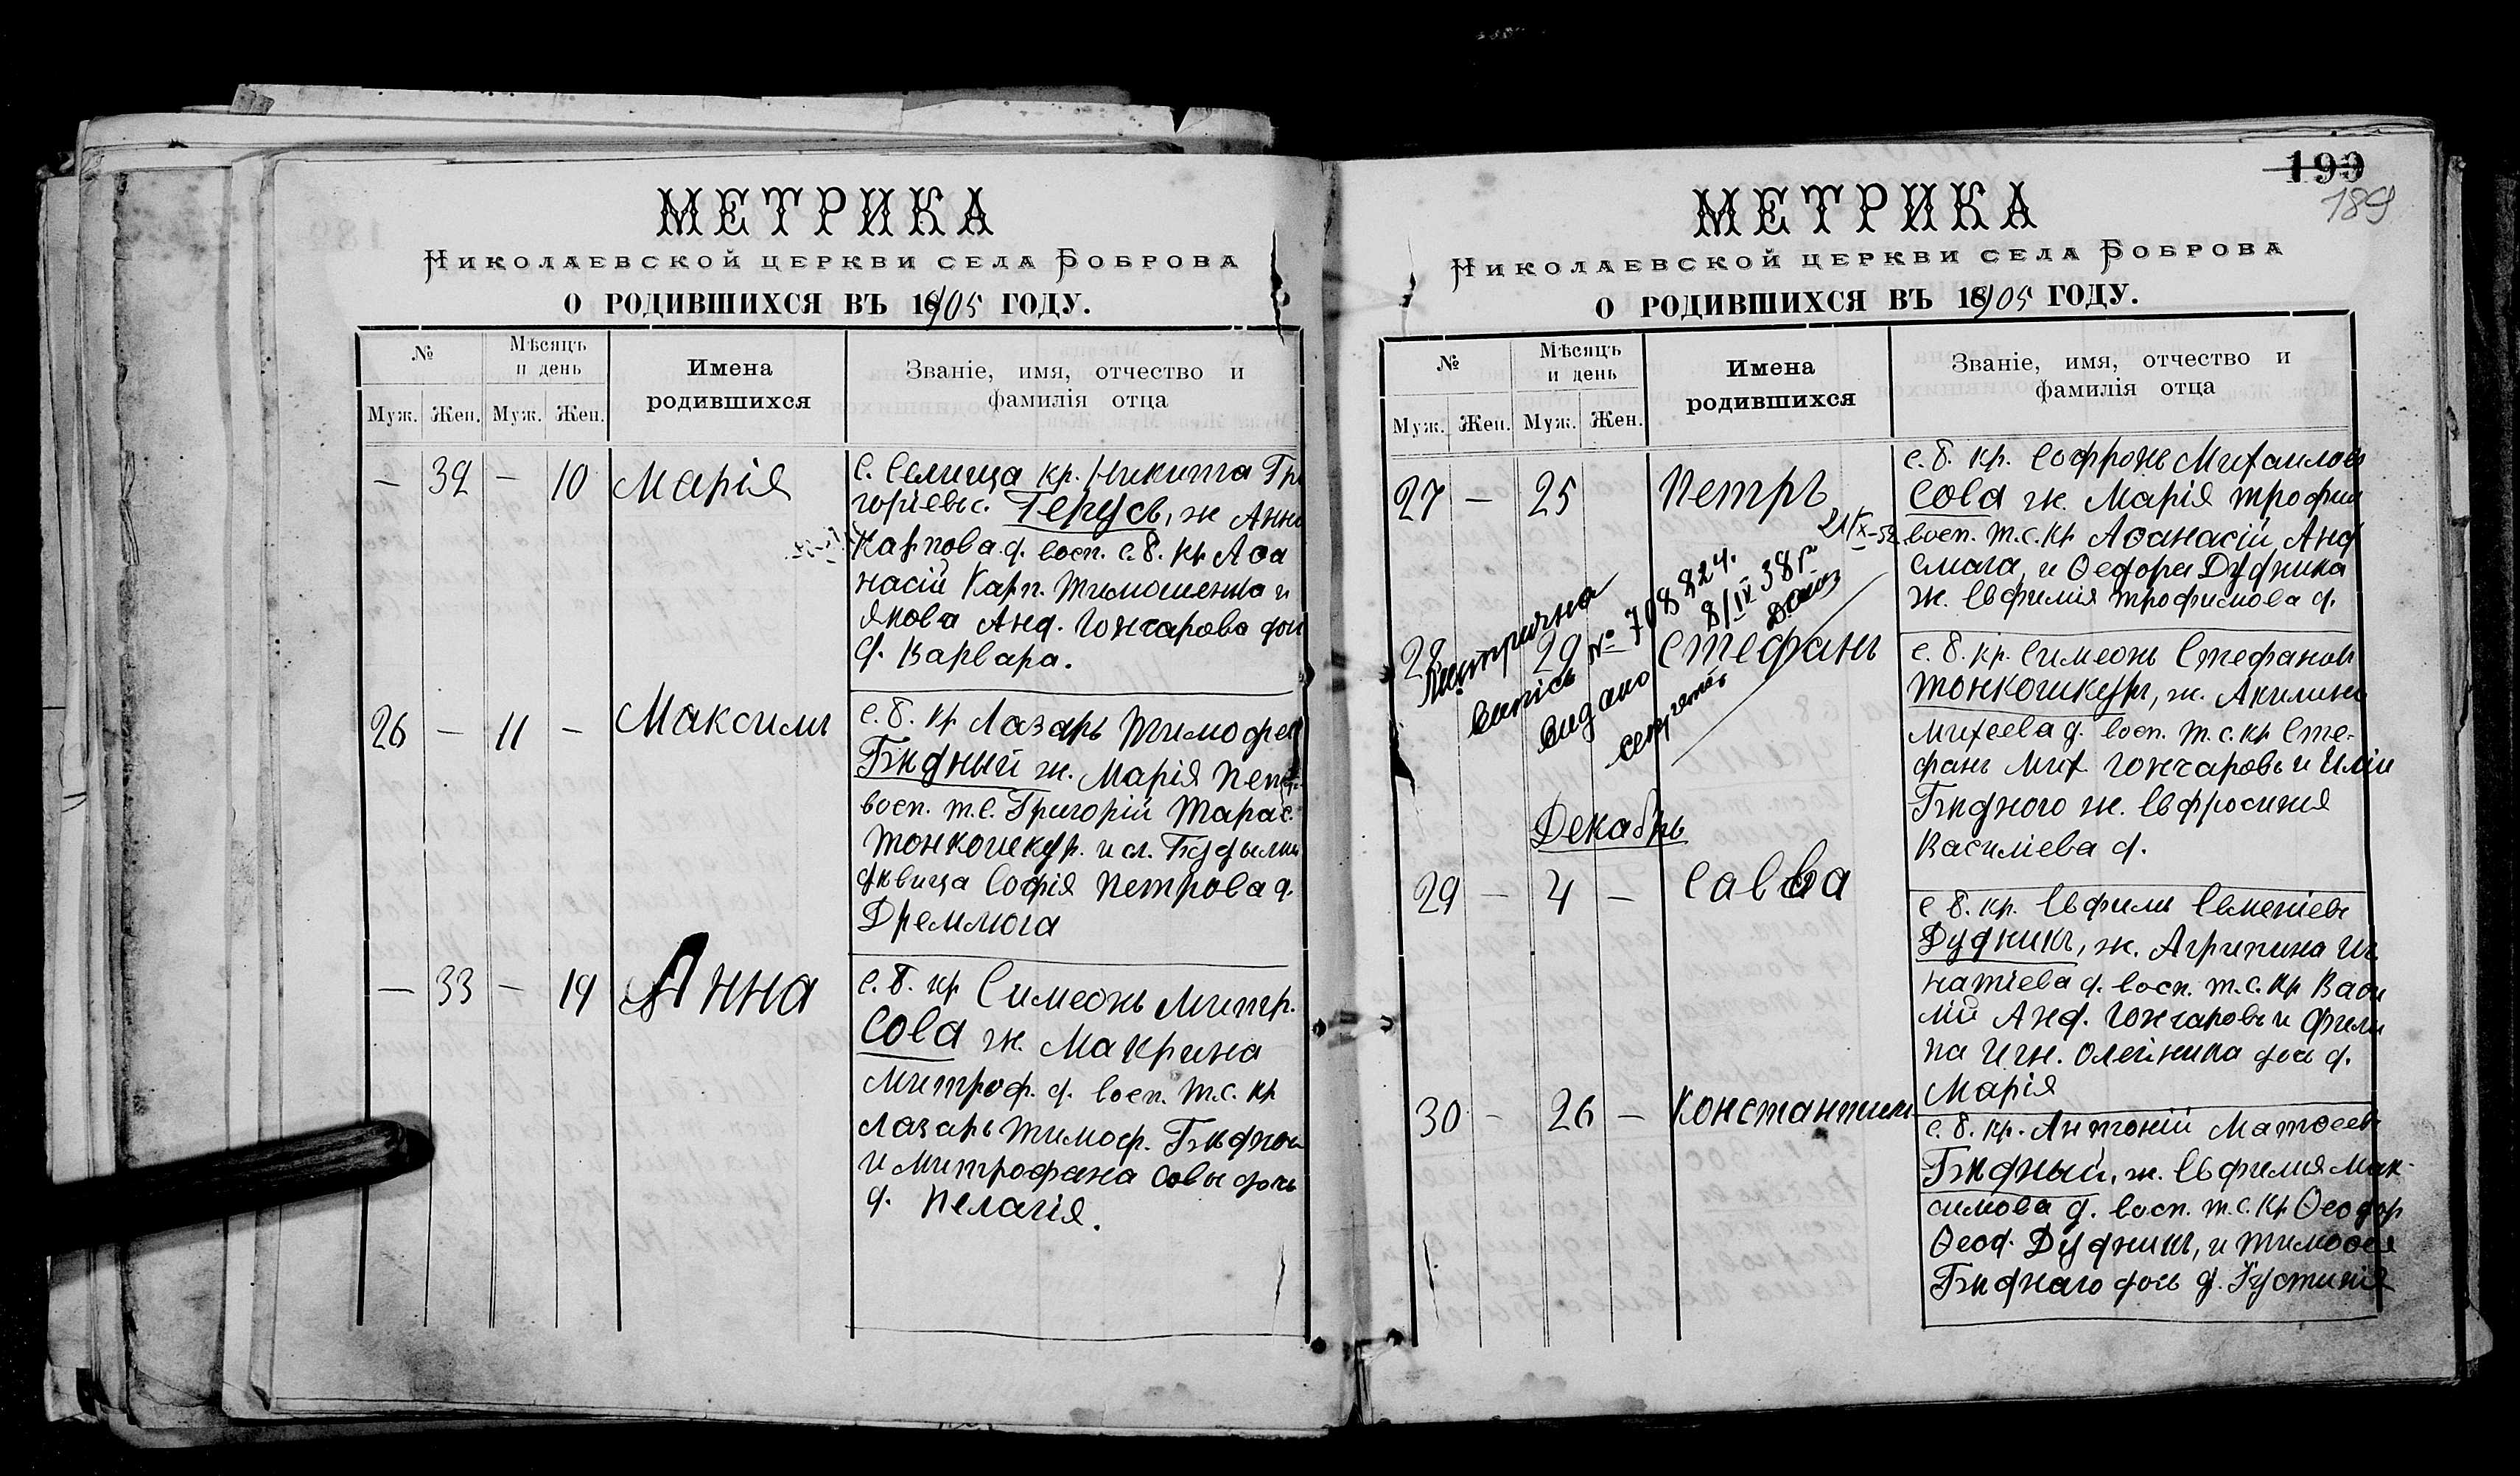 МЕТРИКА
НИКОЛАЕВСКОЙ ЦЕРКВИ СЕЛА БОБРОВА
О РОДИВШИХСЯ ВЪ 1905 ГОДУ.
№
Мѣсяцъ и день
Имена родившихся
Званіе, имя, отчество и фамилія отца
Муж. Жен. Муж. Жен.
— 32 — 10 Марія
с. Селища кр. Никита Гри
горіевъ с. Герусъ, ж Анна
Карпова д. восп. с. б. кр Аѳа
насій Карп. Тимошенко и
Якова Анд. Гончарова доч
д. Варвара.
26 — 11 — Максимъ
с. б. кр Лазарь Тимофеев
Бѣдный ж. Марія Петр.
восп. т. с. Григорій Тарас.
Тонкошкур. и сл.
дѣвица Софія Петрова д.
Дремлюга
— 33 — 19 Анна
с. б. кр Симеонъ Митр.
Сова ж. Макрина
Митроф. д. восп. т. с. кр
Лазарь Тимоф. Бѣдной
и Митрофана Совы дочь
д. Пелагія.
199
189
МЕТРИКА
НИКОЛАЕВСКОЙ ЦЕРКВИ СЕЛА БОБРОВА
О РОДИВШИХСЯ ВЪ 1905 ГОДУ.
№
Мѣсяцъ и день
Имена родившихся
Званіе, имя, отчество и фамилія отца
Муж. Жен. Муж. Жен.
27 — 25 Петръ
с. б. кр. Софронъ Михаилов
Сова ж. Марія Трофим
восп. т. с. кр Аѳанасій Анд
Смага, и Ѳедора Дудника
ж. Евфимія Трофимова д.
28 29 Стефанъ
Метрична
Випись № 708824.
Видано 8/IV 38 г
с. б. кр. Симеонъ Стефанов
Тонкошкуръ, ж. Акилина
Михеева д. восп. т. с. кр Сте-
фанъ Мих Гончаровъ и Иліи
Бѣдного ж. Евфросинія
Василіева д.
Декабрь
29 — 4 — Савва
с б. кр. Евфимъ Евменіевъ
Дудникъ, ж. Агрипина Иг
натіева д. восп. т. с. кр Васи
лій Анд. Гончаровъ и Фили
па Игн. Олейника дочь д.
Марія
30 — 26 — Константинъ
с. б. кр. Антоній Матѳеевъ
Бѣдный, ж. Евфимія Мак-
симова д. восп. т. с. кр Ѳеодор
Ѳеод. Дудникъ, и Тимоѳея
Бѣднаго дочь д. Іустинія